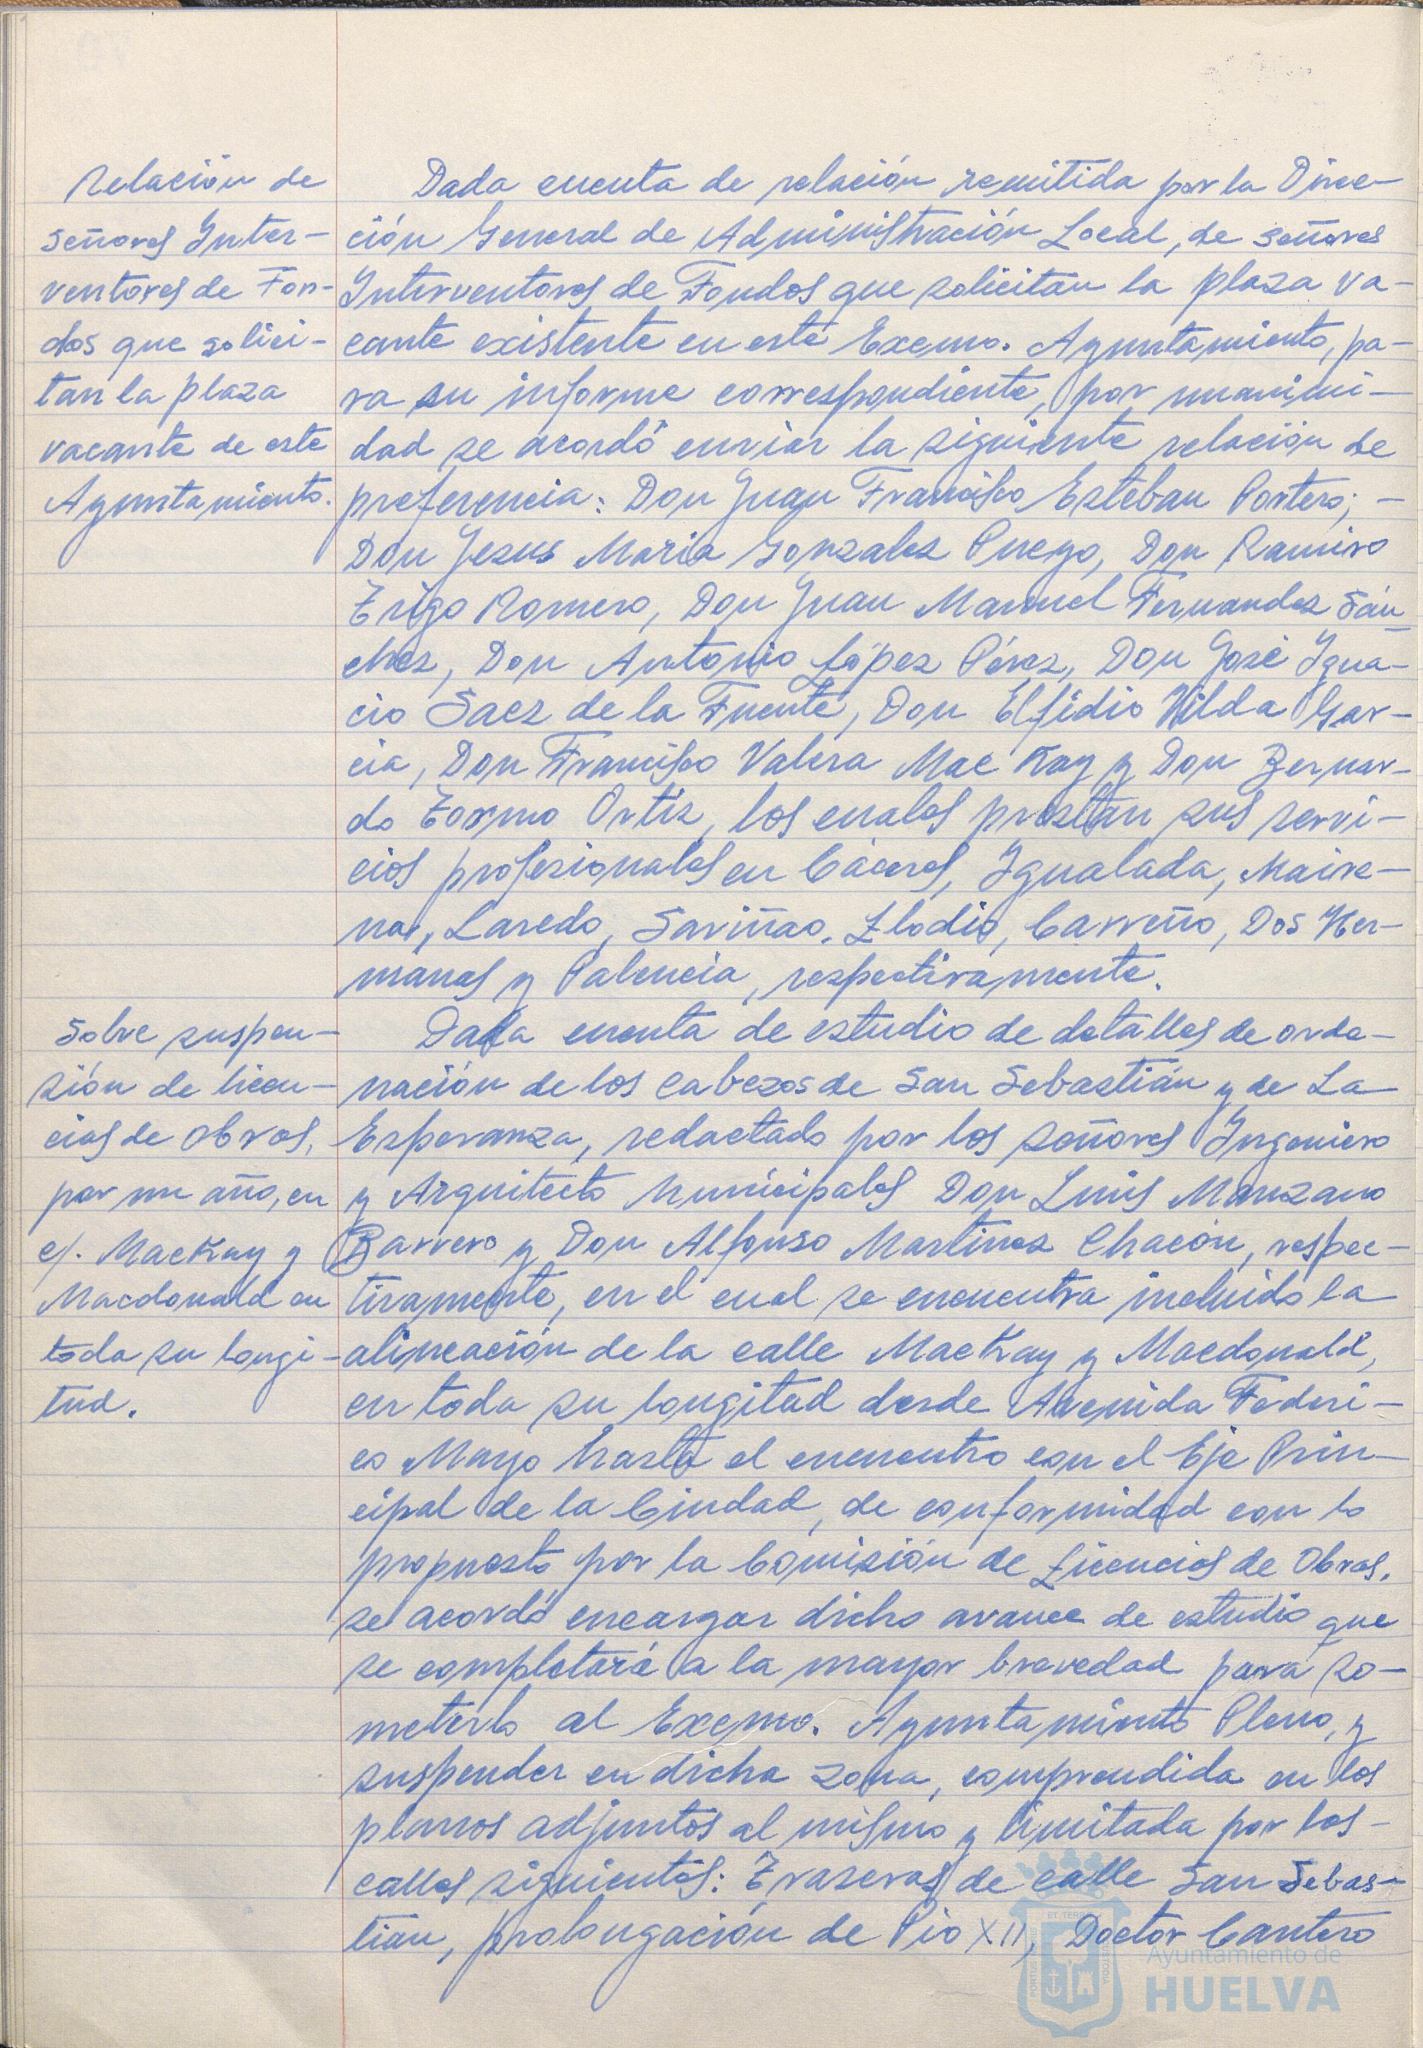 Relación de
Señores Inter-
ventores de Fon-
dos que solici-
tan la plaza
vacante de este
Ayuntamiento.
Dada cuenta de relación remitida por la Direc-
ción General de Administración Local, de señores
Interventores de Fondos que solicitan la plaza va-
cante existente en este Excmo. Ayuntamiento, pa-
ra su informe correspondiente, por unanimi-
dad se acordó enviar la siguiente relación de
preferencia: Don Juan Francisco Esteban Portero; -
Don Jesus Maria Gonzalez Pueyo, Don Ramiro
Trigo Romero, Don Juan Manuel Fernandez Sán
chez, Don Antonio López Pérez, Don José Igna-
cio Saez de la Fuente, Don Elfidio Vilda Gar-
cia, Don Francisco Valera Mac Kay y Don Bernar-
do Tormo Ortiz, los cuales prestan sus servi-
cios profesionales en Cáceres, Igualada, Maire-
na, Laredo, Saviñao, Llodio, Carreño, Dos Her-
manas y Palencia, respectivamente.
Sobre suspen-
sión de licen-
cias de obras,
por un año, en
c/. MacKay y
Macdonald en
toda su longi-
tud.
Dada cuenta de estudio de detalles de orde-
nación de los Cabezos de San Sebastián y de La
Esperanza, redactado por los señores Ingeniero
y Arquitecto Municipales Don Luis Manzano
Barrero y Don Alfonso Martinez Chacón, respec-
tivamente, en el cual se encuentra incluido la
alineación de la calle MacKay y Macdonald,
en toda su longitud desde Avenida Federi-
co Mayo hasta el encuentro con el Eje Prin-
cipal de la Ciudad, de conformidad con lo
propuesto por la Comisión de Licencias de Obras,
se acordó encargar dicho avance de estudio que
se completará a la mayor brevedad para so-
meterlo al Excmo. Ayuntamiento Pleno, y
suspender en dicha zona, comprendida en los
planos adjuntos al mismo y limitada por las-
calles siguientes: Traseras de calle San Sebas-
tian, prolongación de Pio XII, Doctor Cantero
Ayuntamiento de
HUELVA